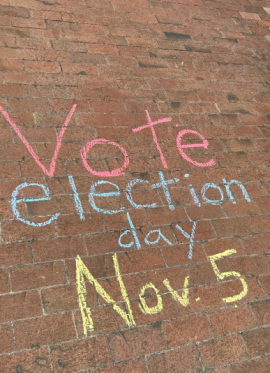 Vote
election
day
Nov. 5